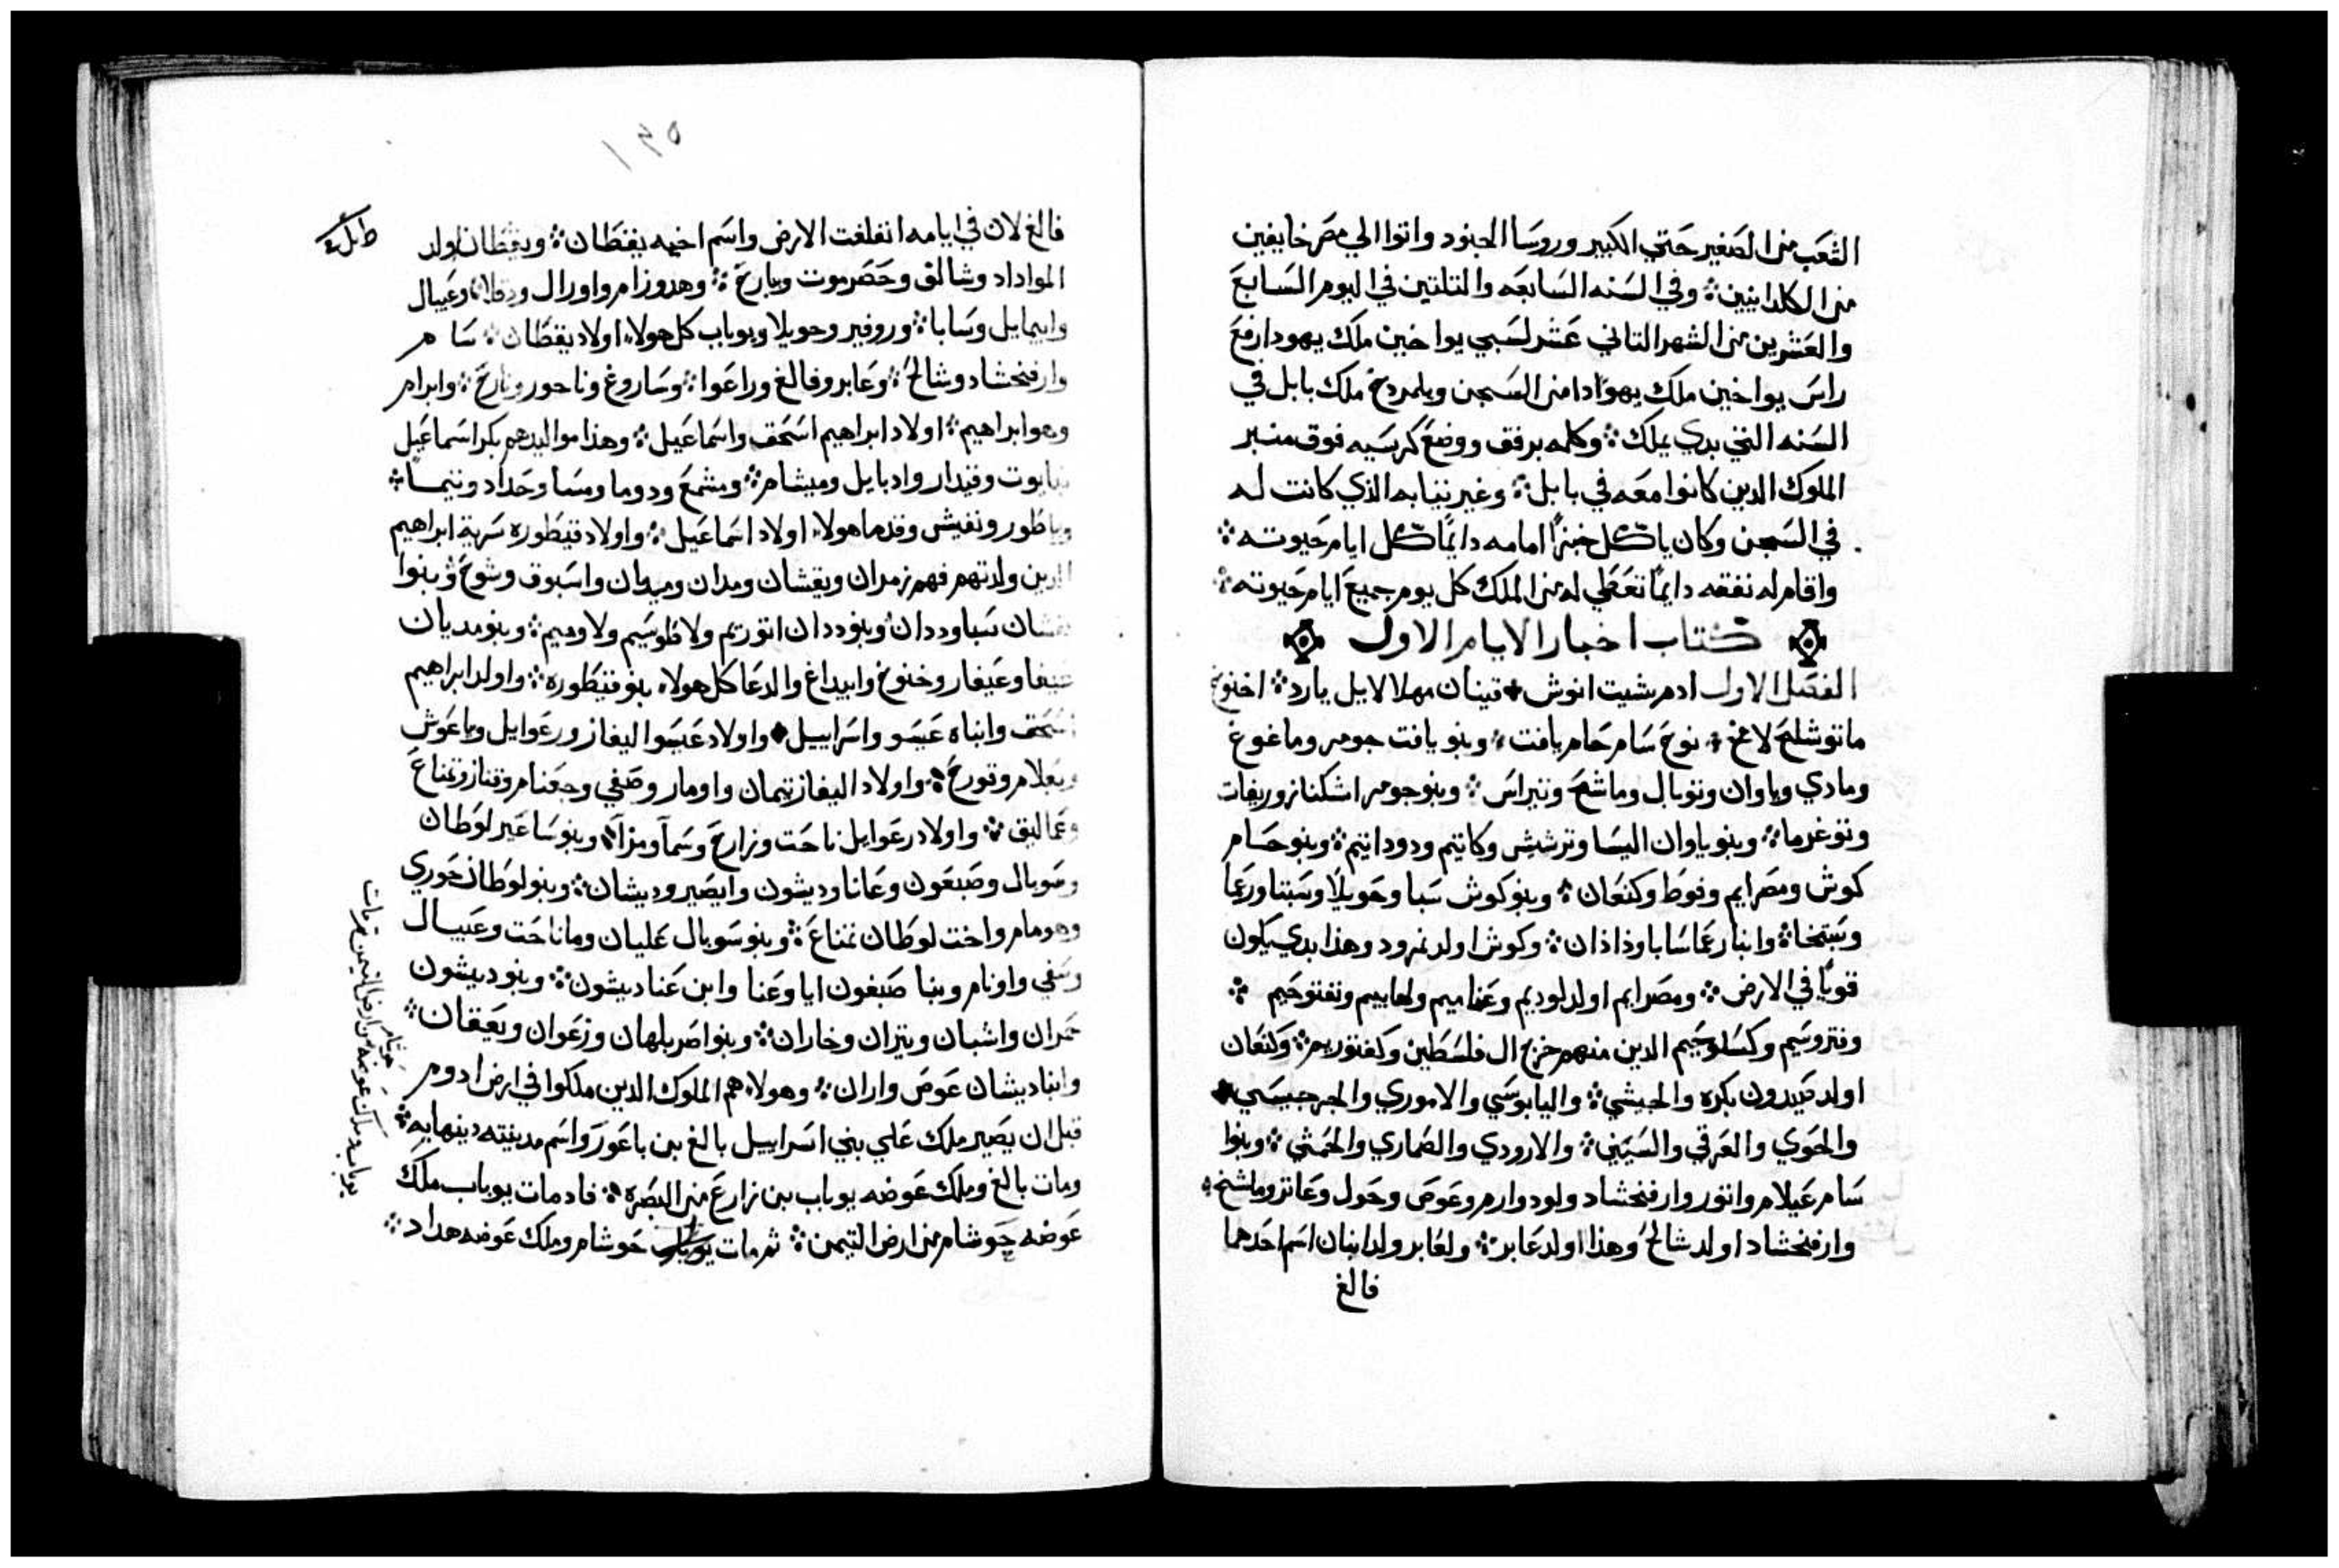 الشعب من الصغير حتي الكبير وروسا الجنود واتوا الي مصر خايفين
من الكلدانيين ܀ وفي السنه السابعه والتلتين في اليوم السابع
والعشرين من الشهر التاني عشر لسبي يواخين ملك يهودا رفع
راس يواخين ملك يهوادا من السجن ويلمردخ ملك بابل في
السنه التي بدي يملك ܀ وكلمه برفق ووضع كرسيه فوق منبر
الملوك الدين كانوا معه في بابل ܀ وغير تيابه الذي كانت له
في السجن وكان ياكل خبزا امامه دايما كل ايام حيوته ܀
واقام له نفقه دايما تعطي له من الملك كل يوم جميع ايام حيوته ܀
كتاب اخبار الايام الاول
الفصل الاول ادم شيت انوش ܀ قينان مهلالايل يارد ܀ اخنوخ
ماتوشلح لامخ ܀ نوح سام حام يافت ܀ وبنو يافت جومر وماغوغ
ومادي وياوان وتوبال وماشح وتيراس ܀ وبنو جومر اشكناز وريفات
وتوغرما ܀ وبنو ياوان اليسا وترشيش وكاتيم ودودانيم ܀ وبنو حام
كوش ومصرايم وفوط وكنعان ܀ وبنو كوش سبا وحويلا وسبتا ورعما
وسبتخا ܀ وابنا رعما سابا وذاذان ܀ وكوش اولد نمرود وهذا بدي يكون
قويا في الارض ܀ ومصرايم اولد لوديم وعناميم ولهابيم ونفتوحيم ܀
وفتروسيم وكسلوحيم الدين منهم خرج ال فلسطين وكفتوريم ܀ وكنعان
اولد صيدون بكره والحيثي ܀ واليابوسي والاموري والجرجيسي ܀
والحوي والعرقي والسيني ܀ والارودي والصماري والحمثي ܀ وبنوا
سام عيلام واتور وارفخشاد ولود وارم وعوص وحول وعاتر وماشخ ܀
وارفخشاد اولد شالخ وهذا اولد عابر ܀ ولعابر ولد ابنان اسم احدهما
فالغ
١٣٥
فالغ لان في ايامه انفلغت الارض واسم اخيه يقطان ܀ ويقطان اولد
الموداد وشالق وحضرموت ويارخ ܀ وهدوزام واورال ودقلا وعيبال
وابيمايل وسابا ܀ وروفير وحويلا ويوباب كل هولاء اولاد يقطان ܀ سام
وارفخشاد وشالخ ܀ وعابر وفالغ وراعوا ܀ وساروغ وناحور وتارخ ܀ وابرام
وهو ابراهيم ܀ اولاد ابراهيم اسحق واسماعيل ܀ وهذا مواليدهم بكر اسماعيل
نبايوت وقيدار وادبايل وميشام ܀ ومشمع ودوما ومسا وحداد وتيما ܀
وياطور ونفيش وقدما هولاء اولاد اسماعيل ܀ واولاد قيطوره سرية ابراهيم
الدين ولدتهم فهم زمران ويقشان ومدان وميديان واسبوق وشوخ وبنوا
يقشان سبا وددان وبنو ددان اتوريم ولاطوسيم ولاوميم ܀ وبنو مديان
عيفا وعيفار وخنوخ وابيداغ والدعا كل هولاء بنو قيطوره ܀ واولد ابراهيم
اسحق وابناه عيسو واسراييل ܀ واولاد عيسوا اليفاز ورعوايل وياعوش
ويعلام وقورح ܀ واولاد اليفاز تيمان واومار وصفي وجعتام وقناز وتمناع
وعماليق ܀ واولاد رعوايل ناحت وزارح وسما ومزا ܀ وبنو ساعير لوطان
وسوبال وصبعون وعانا وديشون وايصير وديشان ܀ وبنو لوطان حوري
وهومام واخت لوطان تمناع ܀ وبنو سوبال عليان وماناحت وعيبال
وسفي واونام وبنا صبغون ايا وعنا وابن عنا ديشون ܀ وبنو ديشون
حمران واشبان ويتران وخاران ܀ وبنو اصر بلهان وزعوان ويعقان ܀
وابنا ديشان عوص واران ܀ وهولاء هم الملوك الدين ملكوا في ارض ادوم
قبل ان يصير ملك علي بني اسراييل بالغ بن باعور واسم مدينته دينهابه ܀
ومات بالغ وملك عوضه يوباب بن زارع من البصره ܀ فاد مات يوباب ملك
عوضه حوشام من ارض التيمن ܀ تم مات حوشام وملك عوضه هداد ܀